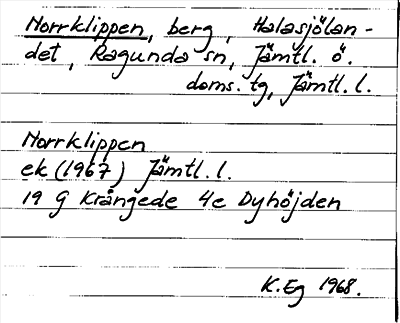 Norrklippen, berg, Halasjölan-
det, Ragunda sn, Jämtl. ö.
doms. tg, Jämtl. l.
Norrklippen
ek (1967) Jämtl. l.
19 G Krångede 4e Dyhöjden
K. Eg 1968.